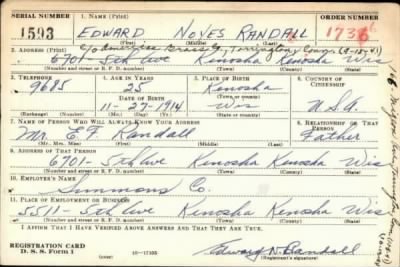 SERIAL NUMBER 1. NAME (Print) ORDER NUMBER
1593 EDWARD NOYES RANDALL 1736
(First) (Middle) (Last)
2. ADDRESS (Print) c/o American Brass Co, Torrington, Conn. (9-15-41)
6701 - 5th Ave Kenosha Kenosha Wis
(Number and street or R. F. D. number) (Town) (County) (State)
3. TELEPHONE 4. AGE IN YEARS 5. PLACE OF BIRTH 6. COUNTRY OF CITIZENSHIP
9685 25 Kenosha
DATE OF BIRTH (Town or county)
11-27-1914 Wis U.S.A.
(Exchange) (Number) (Mo.) (Day) (Yr.) (State or country)
7. NAME OF PERSON WHO WILL ALWAYS KNOW YOUR ADDRESS 8. RELATIONSHIP OF THAT PERSON
Mr. E. F. Randall Father
(Mr., Mrs., Miss) (First) (Middle) (Last)
9. ADDRESS OF THAT PERSON
6701 - 5th Ave Kenosha Kenosha Wis
(Number and street or R. F. D. number) (Town) (County) (State)
10. EMPLOYER'S NAME
Simmons Co.
11. PLACE OF EMPLOYMENT OR BUSINESS
5511 - 5th Ave Kenosha Kenosha Wis
(Number and street or R. F. D. number) (Town) (County) (State)
I AFFIRM THAT I HAVE VERIFIED ABOVE ANSWERS AND THAT THEY ARE TRUE.
REGISTRATION CARD
D. S. S. Form 1 16-17105 Edward N. Randall
(Registrant's signature)